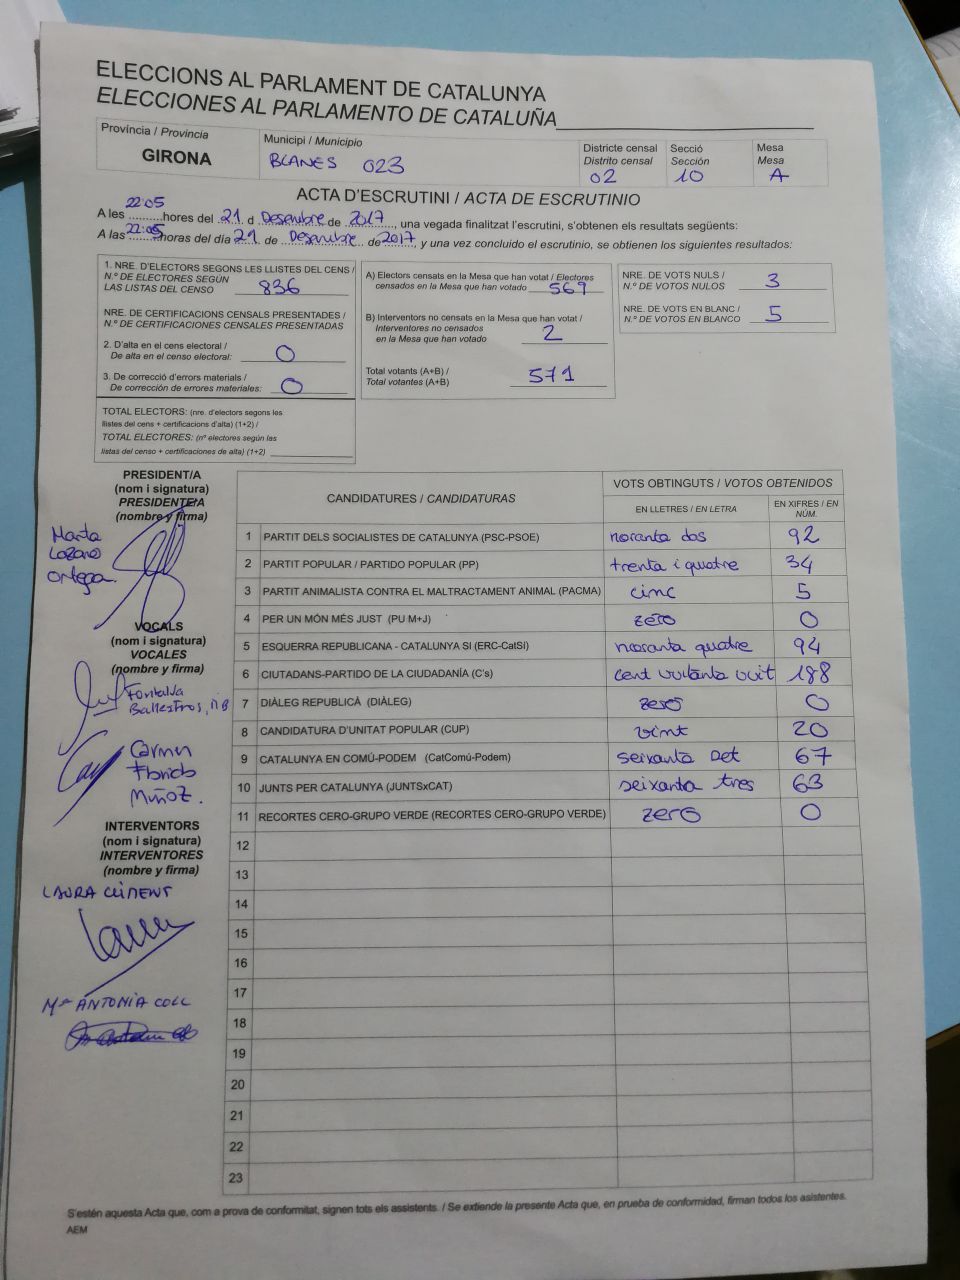 ELECCIONS AL PARLAMENT DE CATALUNYA
ELECCIONES AL PARLAMENTO DE CATALUÑA
Província / Provincia
GIRONA
Municipi / Municipio
BLANES 023
Districte censal
Distrito censal
02
Secció
Sección
10
Mesa
Mesa
A
ACTA D'ESCRUTINI / ACTA DE ESCRUTINIO
A les 22:05 hores del 21 d Desembre de 2017, una vegada finalitzat l'escrutini, s'obtenen els resultats següents:
A las 22:05 horas del día 21 de Desembre de 2017, y una vez concluido el escrutinio, se obtienen los siguientes resultados:
1. NRE. D'ELECTORS SEGONS LES LLISTES DEL CENS /
N.º DE ELECTORES SEGÚN
LAS LISTAS DEL CENSO 836
NRE. DE CERTIFICACIONS CENSALS PRESENTADES /
N.º DE CERTIFICACIONES CENSALES PRESENTADAS
2. D'alta en el cens electoral /
De alta en el censo electoral: 0
3. De correcció d'errors materials /
De corrección de errores materiales: 0
TOTAL ELECTORS: (nre. d'electors segons les
llistes del cens + certificacions d'alta) (1+2) /
TOTAL ELECTORES: (nº electores según las
listas del censo + certificaciones de alta) (1+2)
A) Electors censats en la Mesa que han votat / Electores
censados en la Mesa que han votado 569
B) Interventors no censats en la Mesa que han votat /
Interventores no censados
en la Mesa que han votado 2
Total votants (A+B) /
Total votantes (A+B) 571
NRE. DE VOTS NULS /
N.º DE VOTOS NULOS 3
NRE. DE VOTS EN BLANC /
N.º DE VOTOS EN BLANCO 5
PRESIDENT/A
(nom i signatura)
PRESIDENTE/A
(nombre y firma)
Marta
Lozano
Ortega
VOCALS
(nom i signatura)
VOCALES
(nombre y firma)
Carmen
Muñoz.
INTERVENTORS
(nom i signatura)
INTERVENTORES
(nombre y firma)
LAURA CLIMENT
Mª ANTONIA COLL
CANDIDATURES / CANDIDATURAS
VOTS OBTINGUTS / VOTOS OBTENIDOS
EN LLETRES / EN LETRA
EN XIFRES / EN NÚM.
1 PARTIT DELS SOCIALISTES DE CATALUNYA (PSC-PSOE) noranta dos 92
2 PARTIT POPULAR / PARTIDO POPULAR (PP) trenta i quatre 34
3 PARTIT ANIMALISTA CONTRA EL MALTRACTAMENT ANIMAL (PACMA) cinc 5
4 PER UN MÓN MÉS JUST (PU M+J) zero 0
5 ESQUERRA REPUBLICANA - CATALUNYA SI (ERC-CatSI) noranta quatre 94
6 CIUTADANS-PARTIDO DE LA CIUDADANÍA (C's) cent vuitanta vuit 188
7 DIÀLEG REPUBLICÀ (DIÀLEG) zero 0
8 CANDIDATURA D'UNITAT POPULAR (CUP) vint 20
9 CATALUNYA EN COMÚ-PODEM (CatComú-Podem) seixanta set 67
10 JUNTS PER CATALUNYA (JUNTSxCAT) seixanta tres 63
11 RECORTES CERO-GRUPO VERDE (RECORTES CERO-GRUPO VERDE) zero 0
12
13
14
15
16
17
18
19
20
21
22
23
S'estén aquesta Acta que, com a prova de conformitat, signen tots els assistents. / Se extiende la presente Acta que, en prueba de conformidad, firman todos los asistentes.
AEM